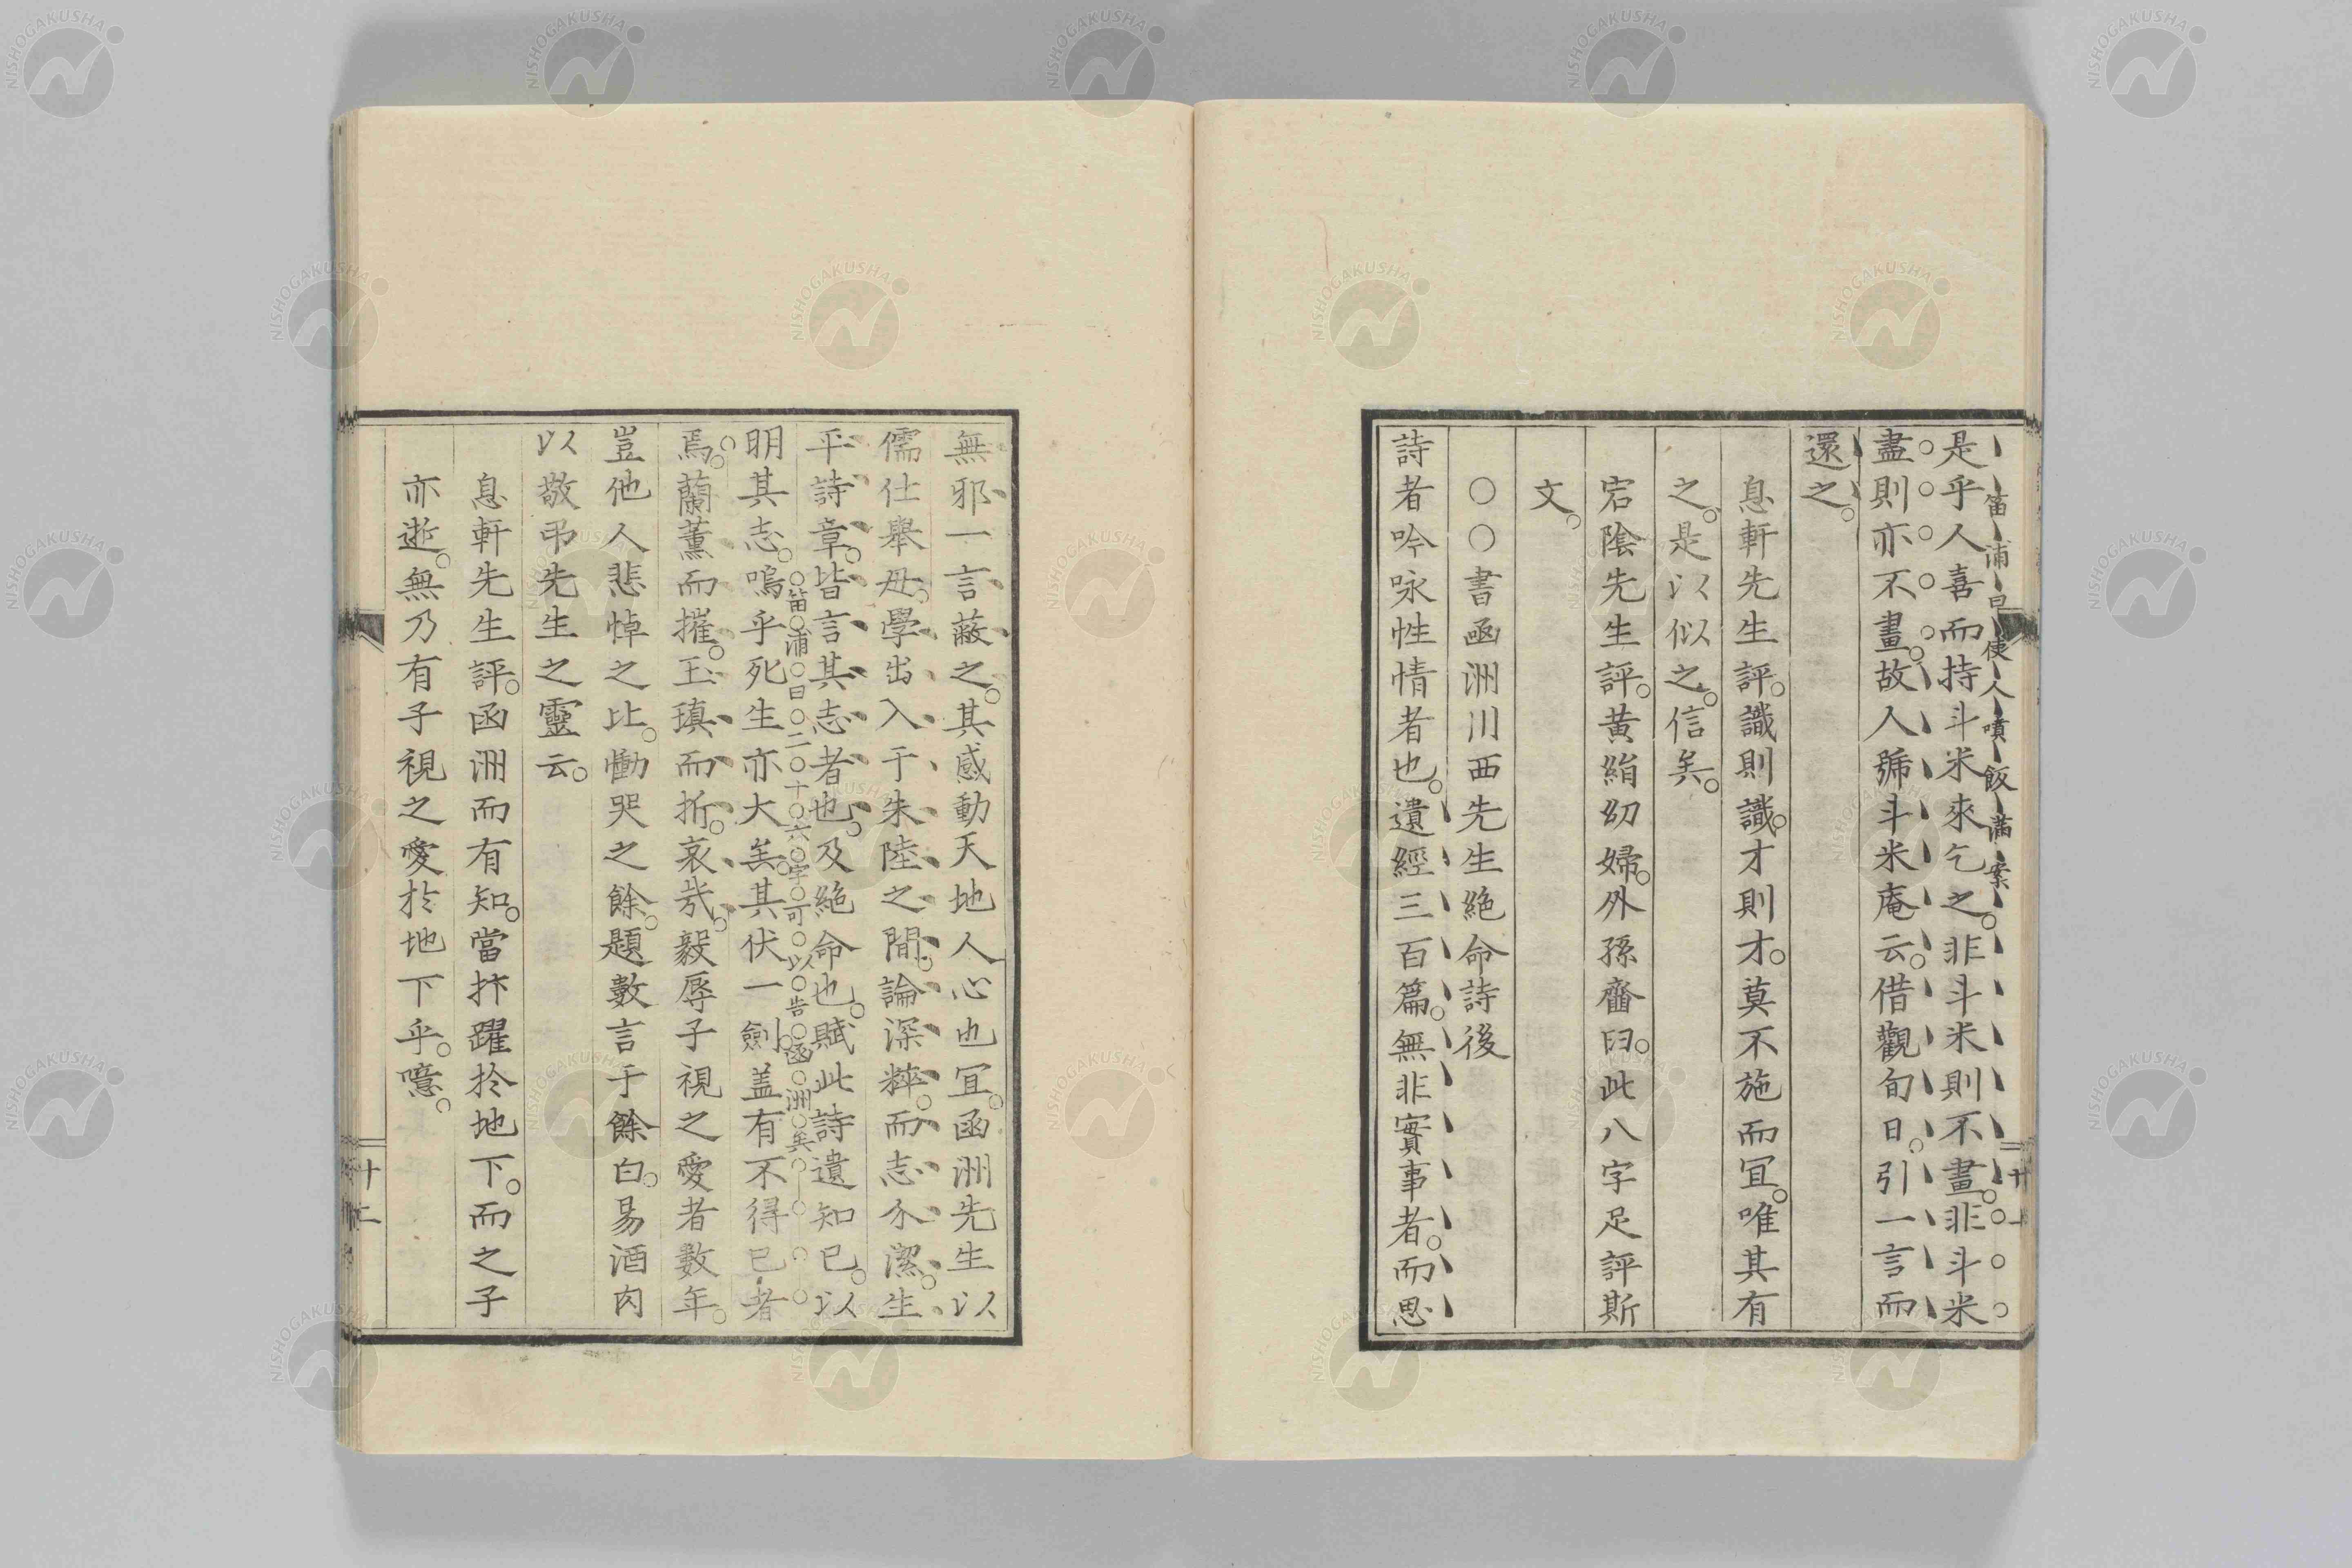 是乎人喜而持斗米來乞之。非斗米則不畫。非斗米
笛浦曰使人噴飯滿案
盡則亦不畫。故人號斗米庵云。借觀旬日。引一言而
還之。
息軒先生評。識則識。才則才。莫不施而宜。唯其有
之。是以似之。信矣。
宕陰先生評。黄絹幼婦。外孫齏臼。此八字足評斯
文。
〇〇書函洲川西先生絶命詩後
詩者吟咏性情者也。遺經三百篇。無非實事者。而思
十一
無邪一言蔽之。其感動天地人心也宜。函洲先生以
儒仕舉母。學出入于朱陸之間。論深粹。而志介潔。生
平詩章。皆言其志者也。及絶命也。賦此詩遺知己。以
笛浦曰二十六字可以告函洲矣
明其志。嗚乎死生亦大矣。其伏一劍。蓋有不得已者
焉。蘭薰而摧。玉瑱而折。哀哉。毅辱子視之愛者數年。
豈他人悲悼之比。慟哭之餘。題數言于餘白。易酒肉
以敬弔先生之靈云。
息軒先生評。函洲而有知。當抃躍於地下。而之子
亦逝。無乃有子視之愛於地下乎。噫。
十二
NISHOGAKUSHA